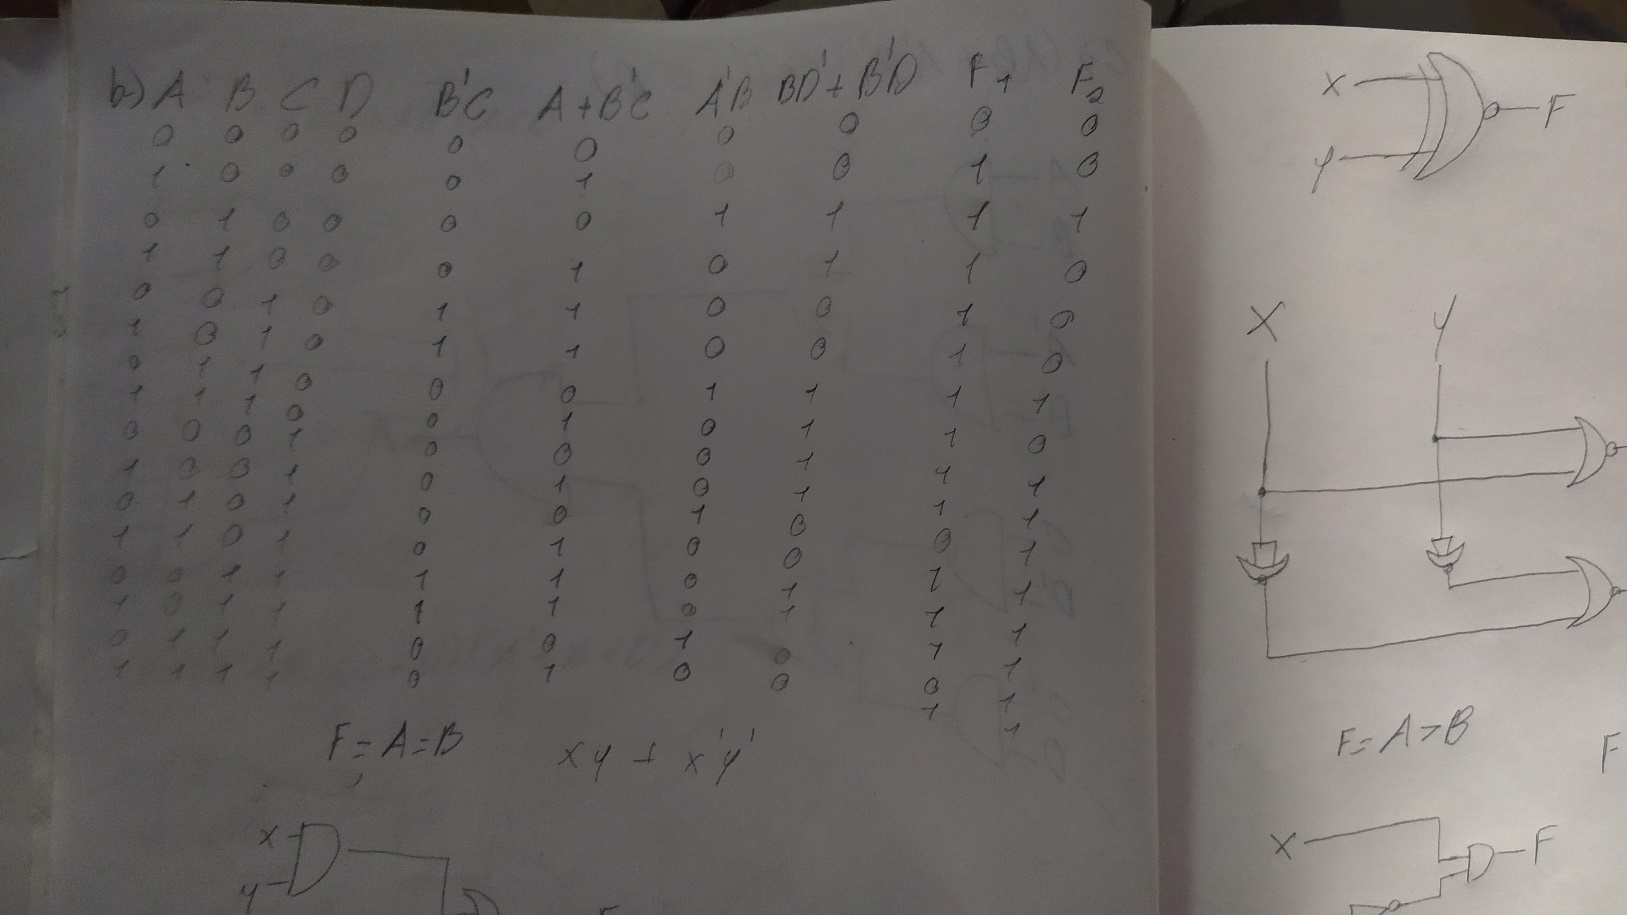 b) A B C D B'C A+B'C A'B BD'+B'D F1 F2
0 0 0 0 0 0 0 0 0 0
1 0 0 0 0 1 0 0 1 0
0 1 0 0 0 0 1 1 1 1
1 1 0 0 0 1 0 1 1 0
0 0 1 0 1 1 0 0 1 0
1 0 1 0 1 1 0 0 1 0
0 1 1 0 0 0 1 1 1 1
1 1 1 0 0 1 0 1 1 0
0 0 0 1 0 0 0 1 1 1
1 0 0 1 0 1 0 1 1 1
0 1 0 1 0 0 1 0 0 1
1 1 0 1 0 1 0 0 1 1
0 0 1 1 1 1 0 1 1 1
1 0 1 1 1 1 0 1 1 1
0 1 1 1 0 0 1 0 0 1
1 1 1 1 0 1 0 0 1 1
F=A=B xy + x'y'
x
y
x
y
F
X
y
F=A>B
F
X
F